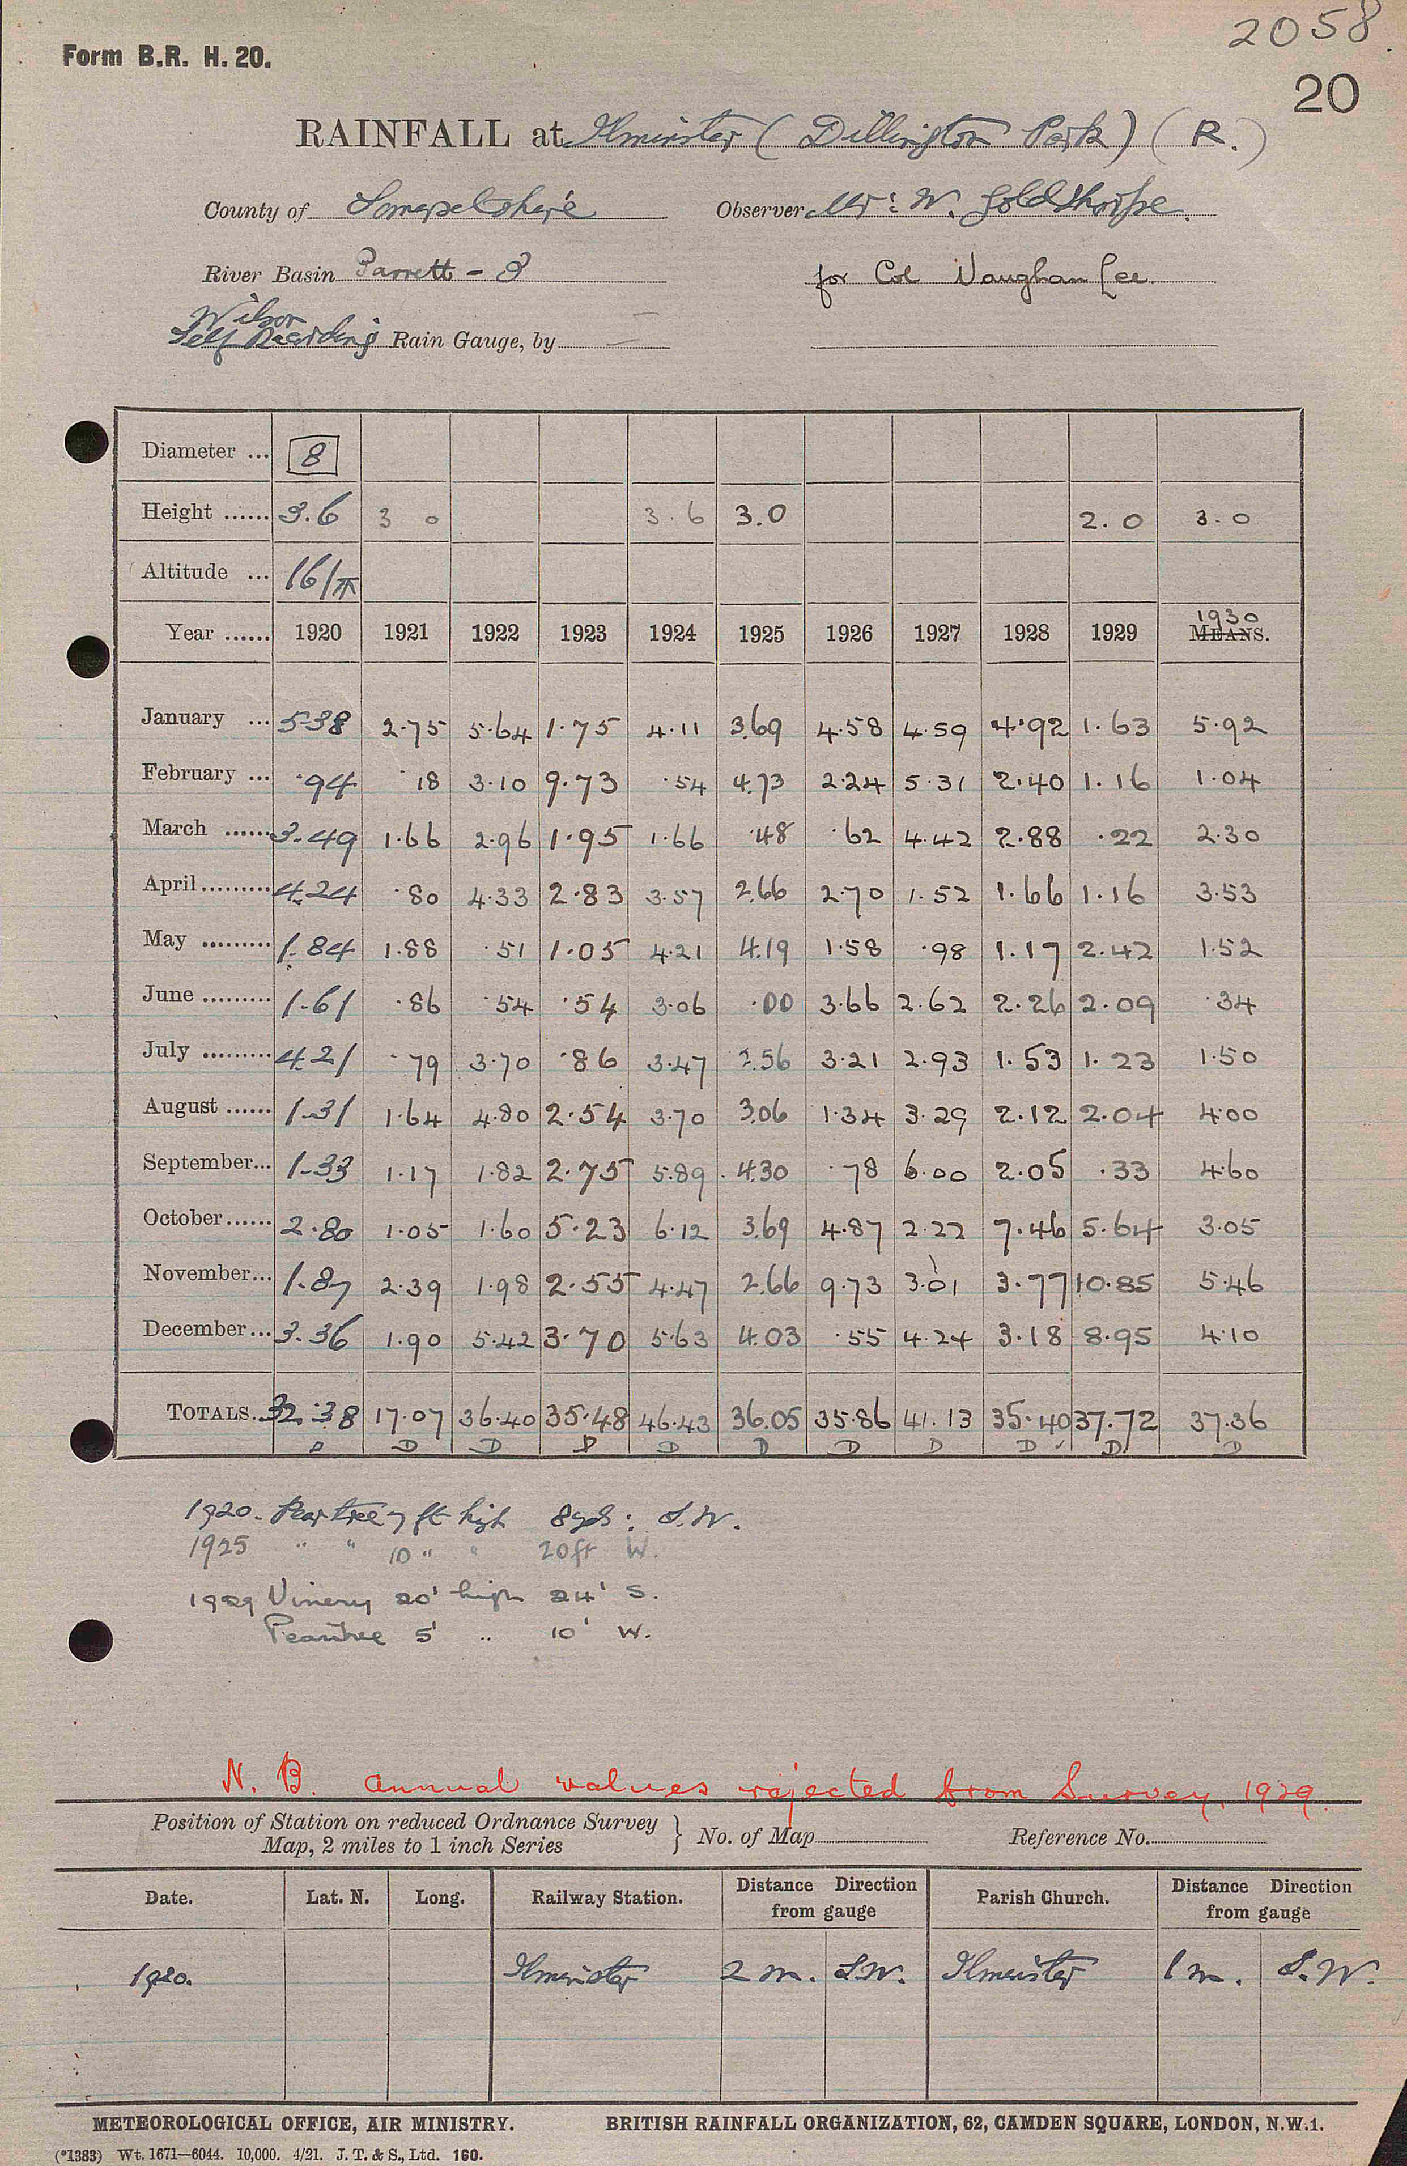 2058
Form B.R. H. 20.
20
RAINFALL at Ilminster (Dillington Park) (R.)
County of Somersetshire Observer Mr: W. Goldthorpe
River Basin Parrett - 3 for Col Vaughan Lee.
Wilson
Self Recording Rain Gauge, by —
Diameter ... 8
Height ...... 3.6 3 0 3.6 3.0 2.0 3.0
Altitude ... 161
1930
Year ...... 1920 1921 1922 1923 1924 1925 1926 1927 1928 1929 MEANS.
January ... 5.38 2.75 5.64 1.75 4.11 3.69 4.58 4.59 4.92 1.63 5.92
February ... .94 .18 3.10 9.73 .54 4.73 2.24 5.31 2.40 1.16 1.04
March ...... 3.49 1.66 2.96 1.95 1.66 .48 .62 4.42 2.88 .22 2.30
April ......... 4.24 .80 4.33 2.83 3.57 2.66 2.70 1.52 1.66 1.16 3.53
May ......... 1.84 1.88 .51 1.05 4.21 4.19 1.58 .98 1.17 2.42 1.52
June ......... 1.61 .86 .54 .54 3.06 .00 3.66 2.62 2.26 2.09 .34
July ......... 4.21 .79 3.70 .86 3.47 2.56 3.21 2.93 1.53 1.23 1.50
August ...... 1.31 1.64 4.80 2.54 3.70 3.06 1.34 3.29 2.12 2.04 4.00
September... 1.33 1.17 1.82 2.75 5.89 4.30 .78 6.00 2.05 .33 4.60
October ...... 2.80 1.05 1.60 5.23 6.12 3.69 4.87 2.22 7.46 5.64 3.05
November... 1.87 2.39 1.98 2.55 4.47 2.66 9.73 3.01 3.77 10.85 5.46
December ... 3.36 1.90 5.42 3.70 5.63 4.03 .55 4.24 3.18 8.95 4.10
TOTALS.. 32.38 17.07 36.40 35.48 46.43 36.05 35.86 41.13 35.40 37.72 37.36
D D D D D D D D D D
1920. Peartree 7 ft high 8yds: S.W.
1925 " " 10 " " 20ft W.
1929 Vinery 20' high 24' S.
Peartree 5' " 10' W.
N. B. Annual values rejected from Survey, 1929.
Position of Station on reduced Ordnance Survey
Map, 2 miles to 1 inch Series } No. of Map Reference No.
Date. Lat. N. Long. Railway Station. Distance Direction from gauge Parish Church. Distance Direction from gauge
1920. Ilminster 2 m. S.W. Ilminster 1 m. S.W.
METEOROLOGICAL OFFICE, AIR MINISTRY. BRITISH RAINFALL ORGANIZATION, 62, CAMDEN SQUARE, LONDON, N.W.1.
(*1383) Wt. 1671—6044. 10,000. 4/21. J. T. & S., Ltd. 160.